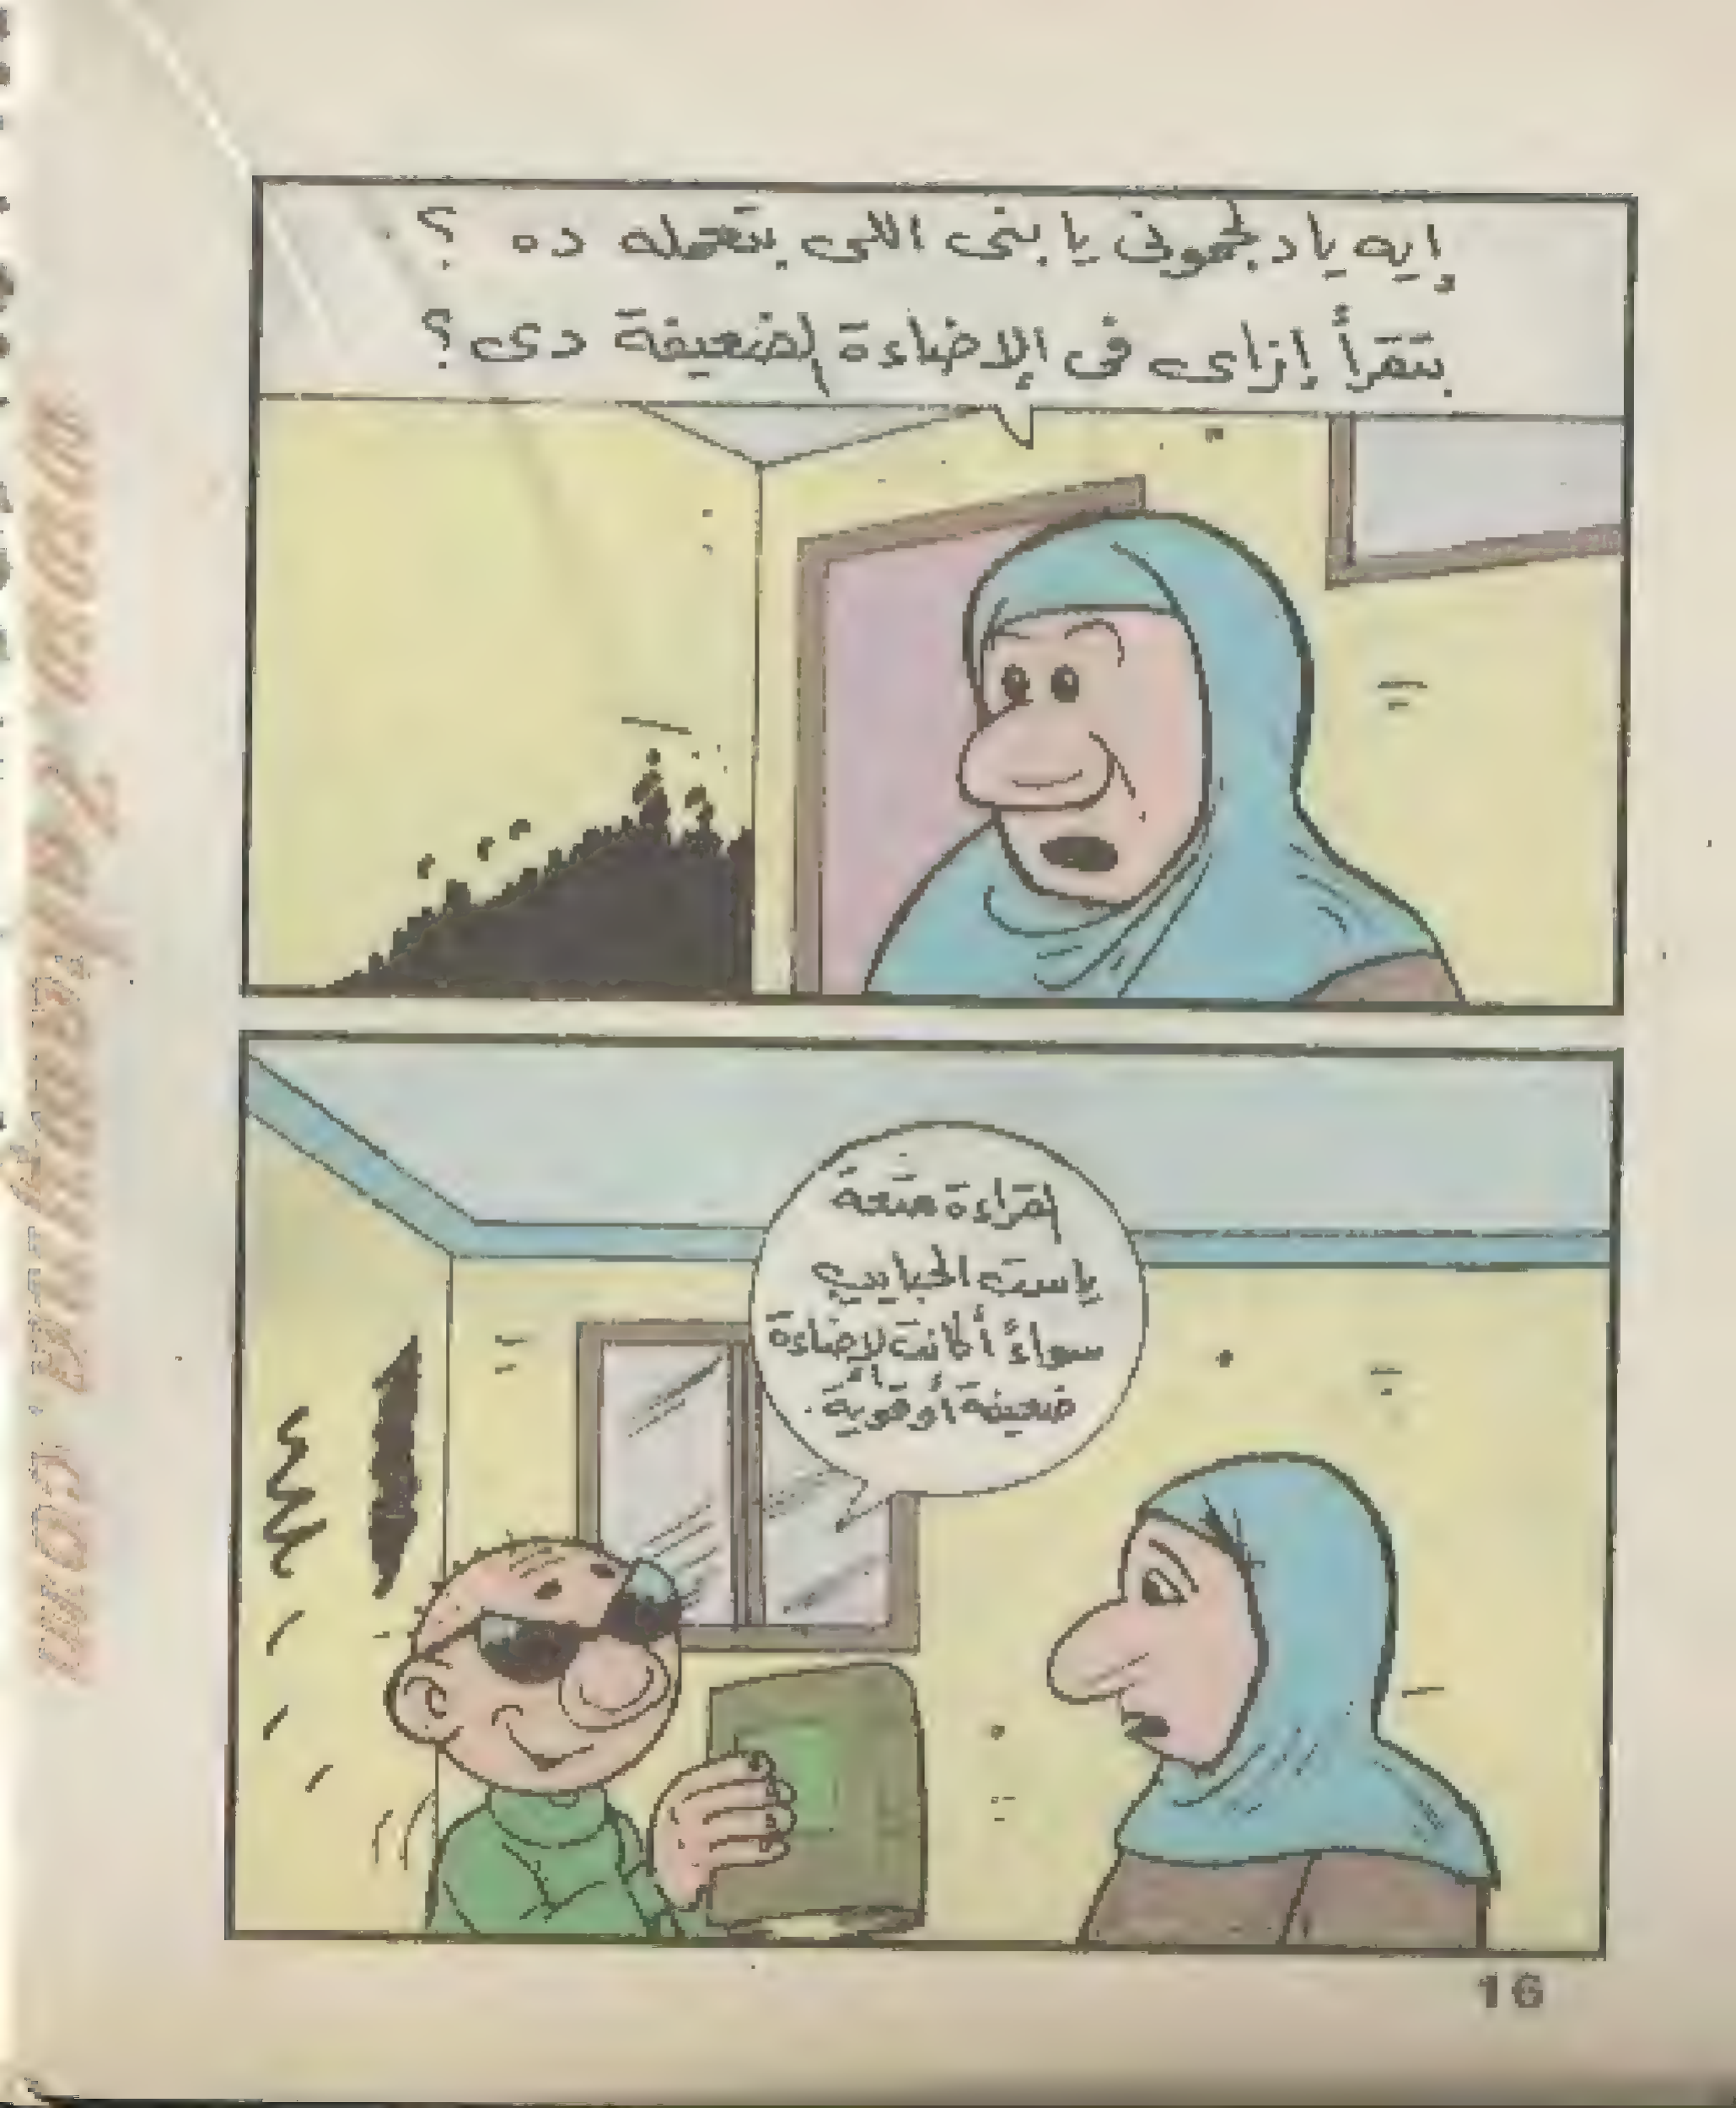 إيه يا دجموني يا بني اللى بتعمله ده ؟
بتقرأ إزاى فى الإضاءة الضعيفة دى؟
القراءة متعة
ياست الحبايب
سواءً أكانت الإضاءة
ضعيفة أو قوية.
16